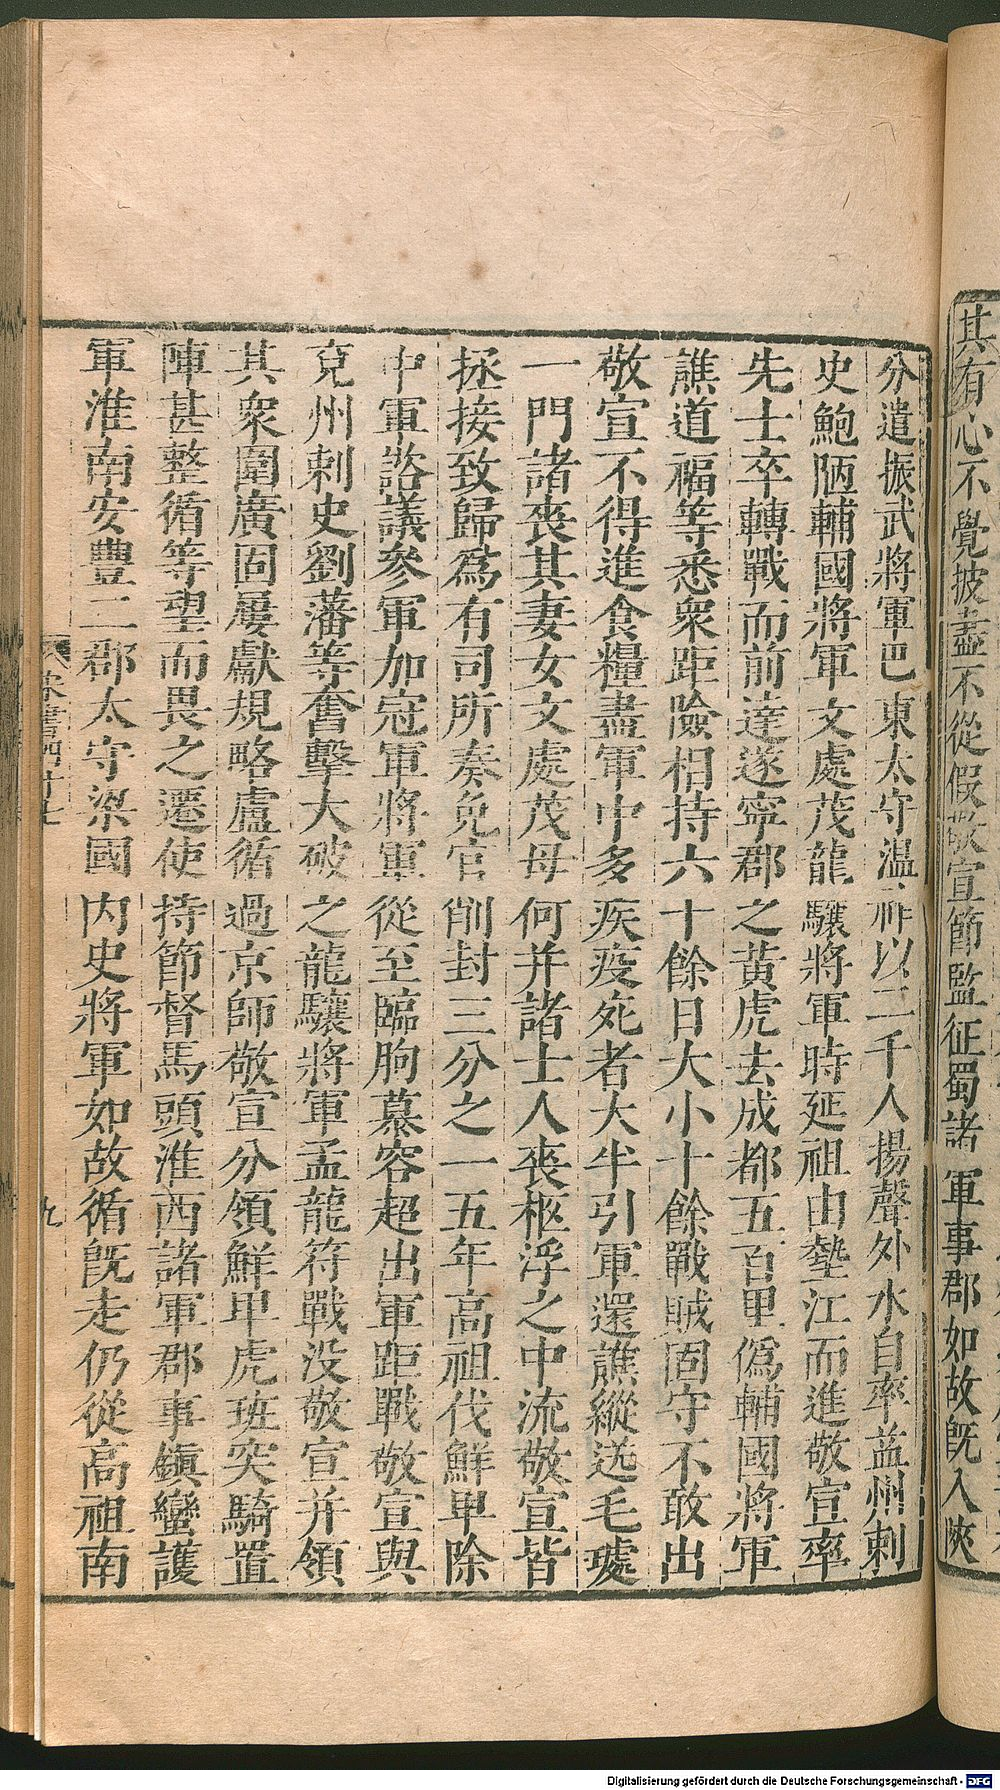 其有心不覺披盡不從假敬宣節監征蜀諸軍事郡如故旣入陝
分遣振武將軍巴東太守溫祚以二千人揚聲外水自率益州刺
史鮑陋輔國將軍文處茂龍驤將軍時延祖由墊江而進敬宣率
先士卒轉戰而前達遂寧郡之黃虎去成都五百里僞輔國將軍
譙道福等悉衆距險相持六十餘日大小十餘戰賊固守不敢出
敬宣不得進食糧盡軍中多疾疫死者大半引軍還譙縱送毛璩
一門諸喪其妻女文處茂母何并諸士人喪柩浮之中流敬宣皆
拯接致歸爲有司所奏免官削封三分之一五年高祖伐鮮卑除
中軍諮議參軍加冠軍將軍從至臨朐慕容超出軍距戰敬宣與
兗州刺史劉藩等奮擊大破之龍驤將軍孟龍符戰没敬宣并領
其衆圍廣固屢獻規略盧循過京師敬宣分領鮮卑虎班突騎置
陣甚整循等望而畏之遷使持節督馬頭淮西諸軍郡事鎮蠻護
軍淮南安豐二郡太守梁國内史將軍如故循旣走仍從高祖南
九
Digitalisierung gefördert durch die Deutsche Forschungsgemeinschaft - DFG